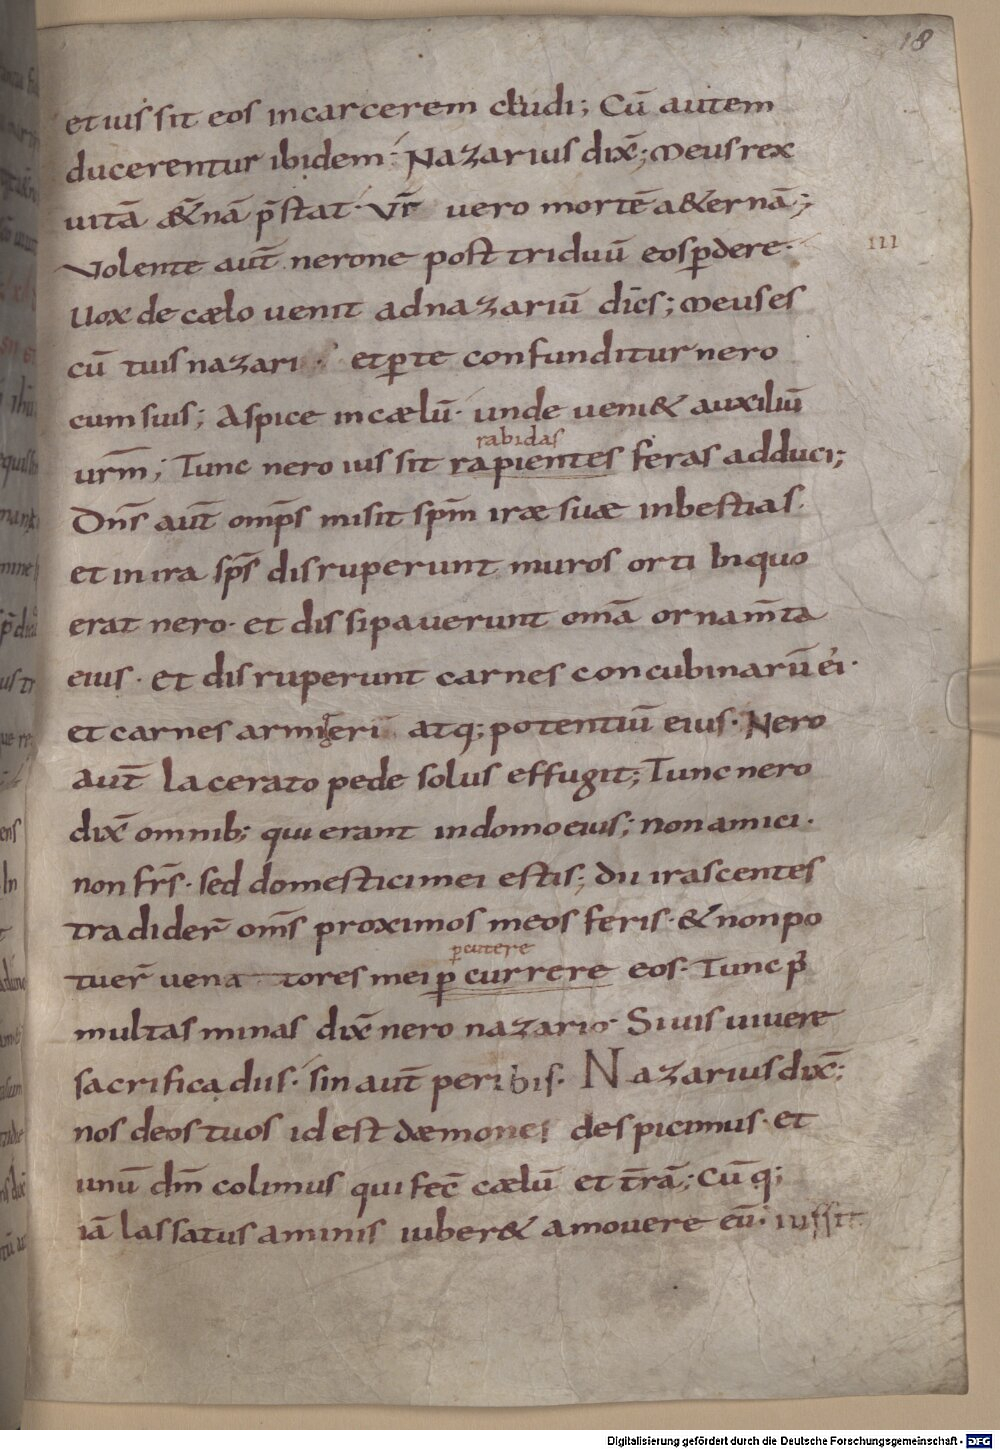 18
et iussit eos incarcerem cludi; Cū autem
ducerentur ibidem· Nazarius dix̄; Meus rex
uitā æt̄nā p̄stat· Vr̄ uero mortē a&ernā;
Volente aut̄ nerone post triduū eos ꝑdere·
III
Uox de cælo uenit ad nazariū dic̄s; Meus es
cū tuis nazari· et ꝑ te confunditur nero
cum suis; Aspice in cælū· unde ueni& auxiliū
rabidas
ur̄m; Tunc nero iussit rapientes feras adduci;
Dn̄s aut̄ omp̄s misit sp̄m iræ suæ in bestias·
et in ira sp̄s disruperunt muros orti In quo
erat nero· et dissipauerunt om̄a ornam̄ta
eius· et disruperunt carnes concubinarū ei·
et carnes armigeri atq; potentiū eius· Nero
aut̄ lacerato pede solus effugit; Tunc nero
dix̄ omnib; qui erant in domo eius; Non amici·
non fr̄s· sed domestici mei estis; Dii irascentes
tradider̄ om̄s proximos meos feris· & non po
ꝑcutere
tuer̄ uenatores mei ꝑcurrere eos· Tunc p̄
multas minas dix̄ nero nazario· Si uis uiuere
sacrifica diis· sin aut̄ peribis· Nazarius dix̄;
nos deos tuos id est dæmones despicimus· et
unū dm̄ colimus qui fec̄ cælū et t̄rā; Cūq;
iā lassatus a minis iuber& amouere eū· iussit
Digitalisierung gefördert durch die Deutsche Forschungsgemeinschaft - DFG